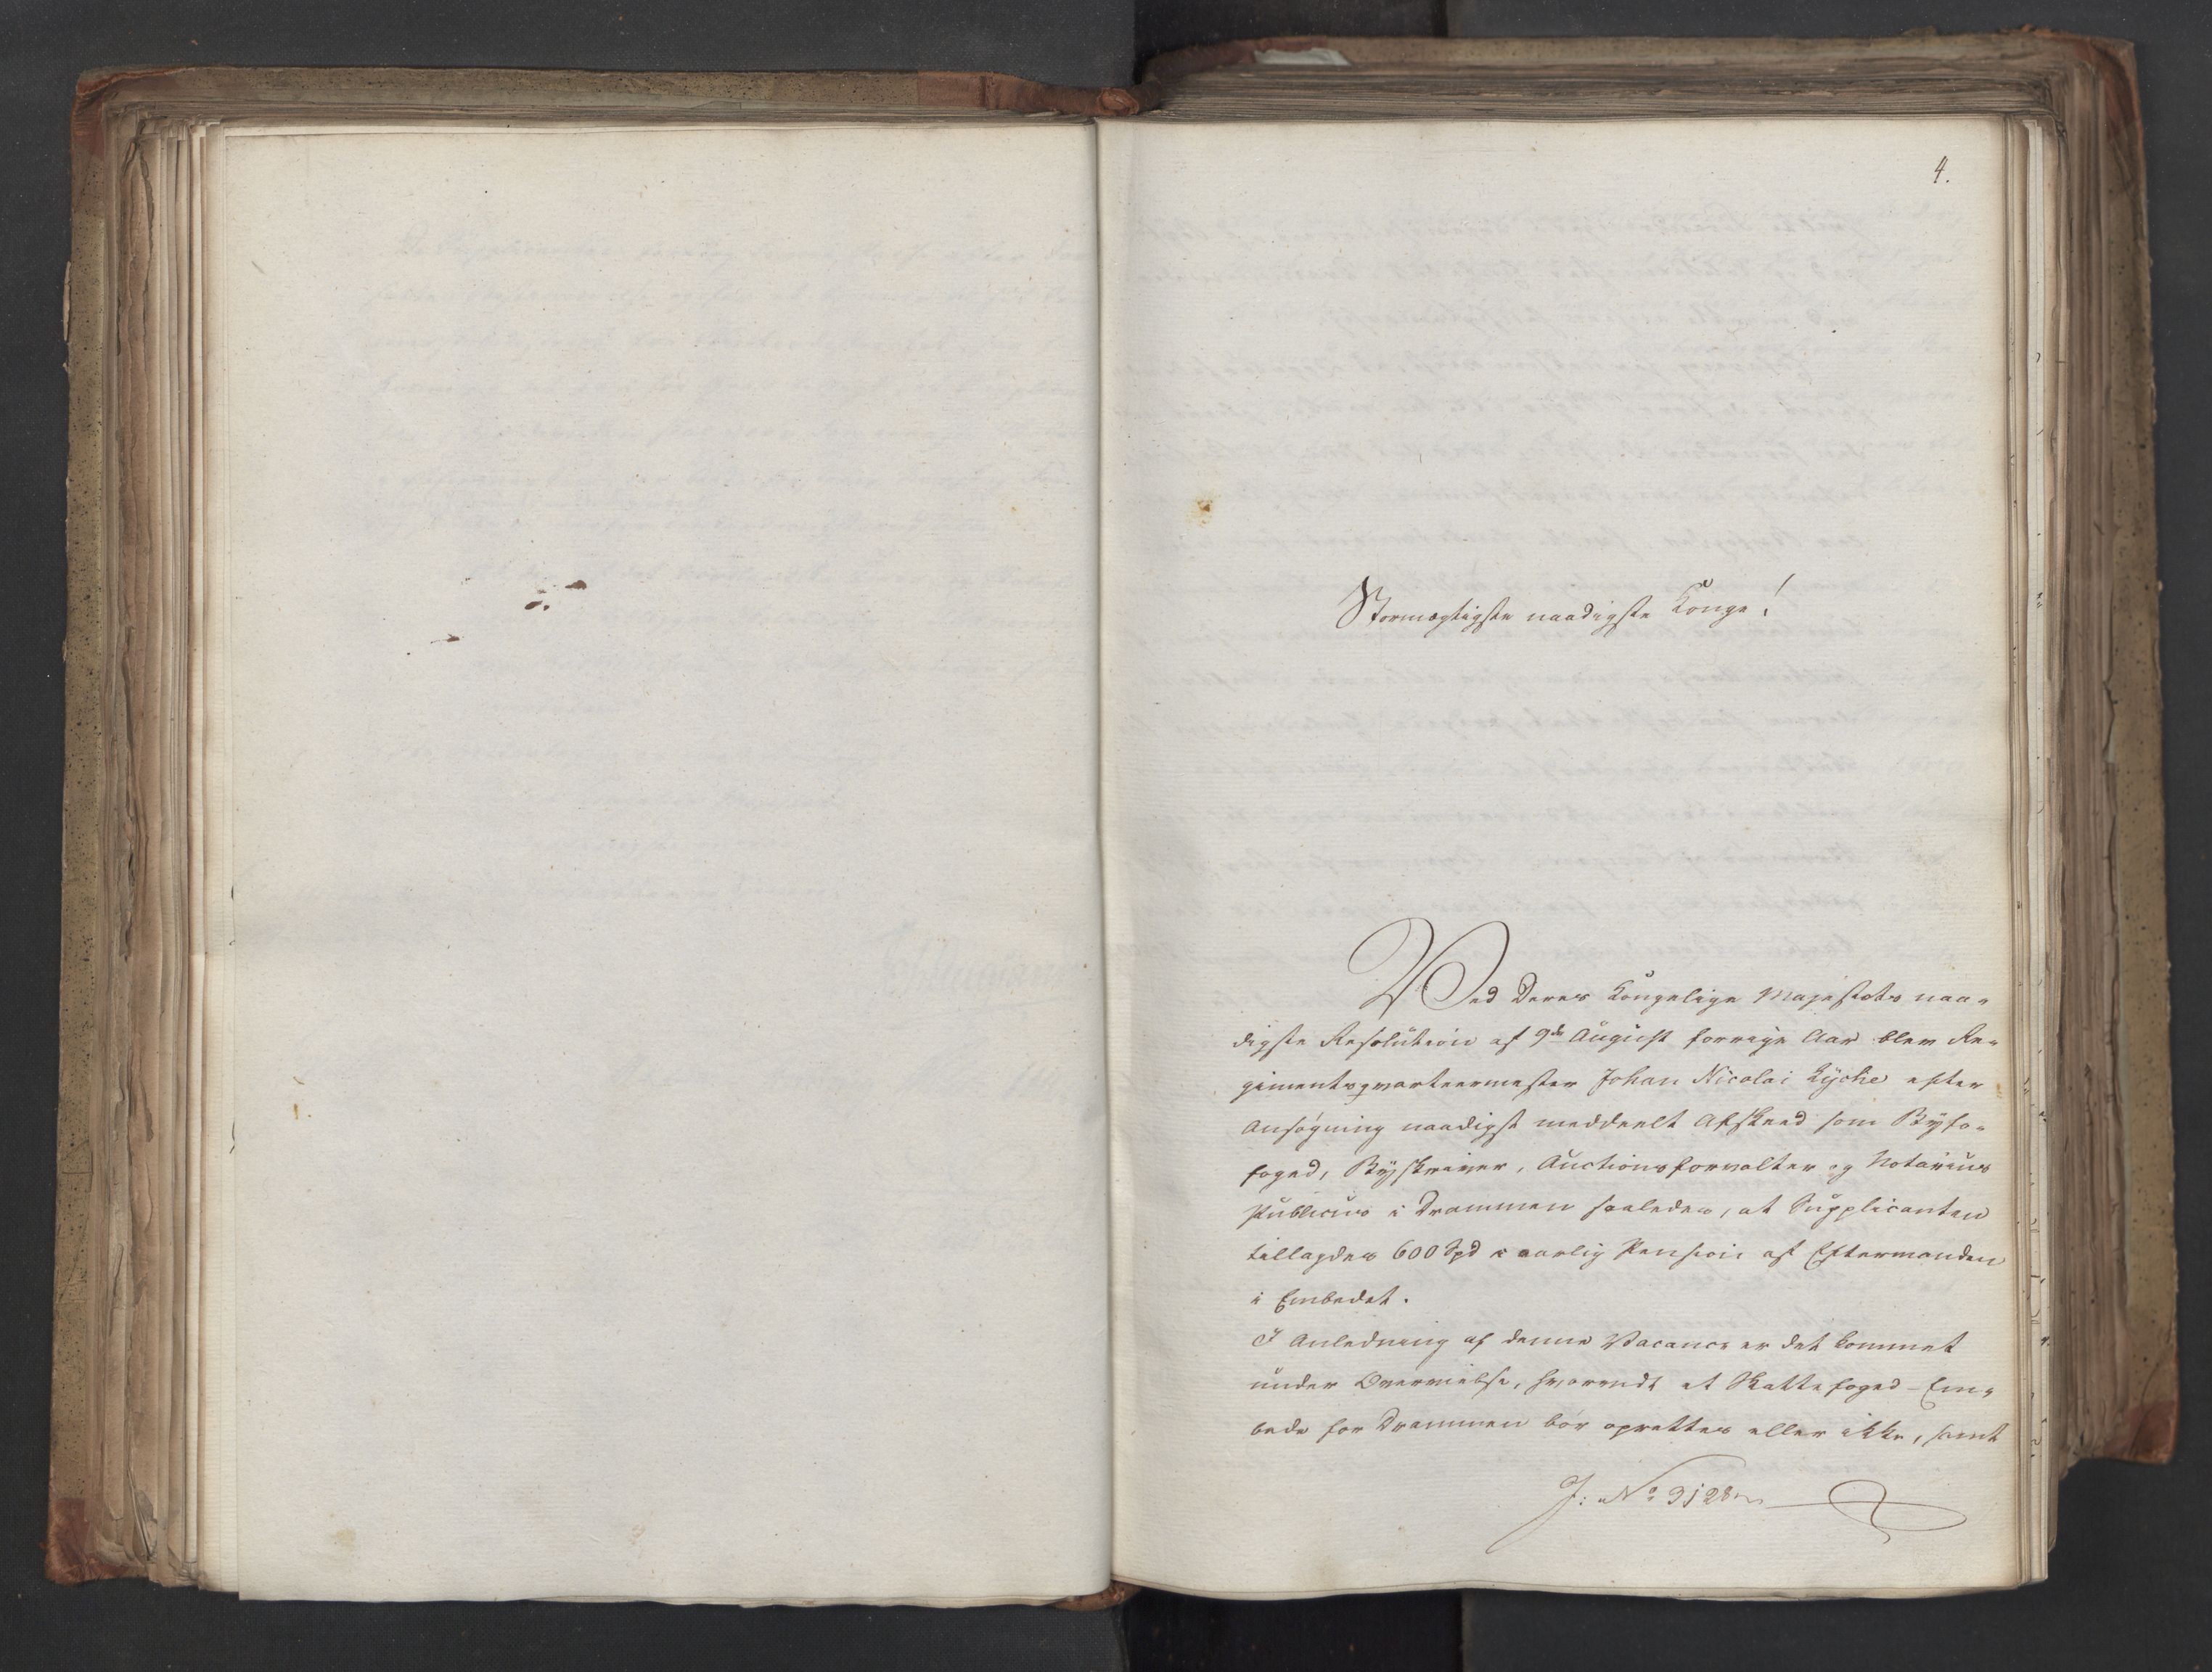 4.
Stormægtigste naadigste Konge!
Ved Deres Kongelige Majestæts naa-
digste Resolution af 9de August forrige Aar blev Re-
gimentsqvarteermester Johan Nicolai Lyche efter
Ansøgning naadigst meddeelt Afskeed som Byfo-
foged, Byskriver, Auctionsforvalter og Notarius
Publicus i Drammen saaledes, at Supplicanten
tillagdes 600 Spd i aarlig Pension af Eftermanden
i Embedet.
I Anledning af denne Vacance er det kommet
under Overveielse, hvorvidt et Skattefoged-Em-
bede for Drammen bør oprettes eller ikke, samt
J: No 3128